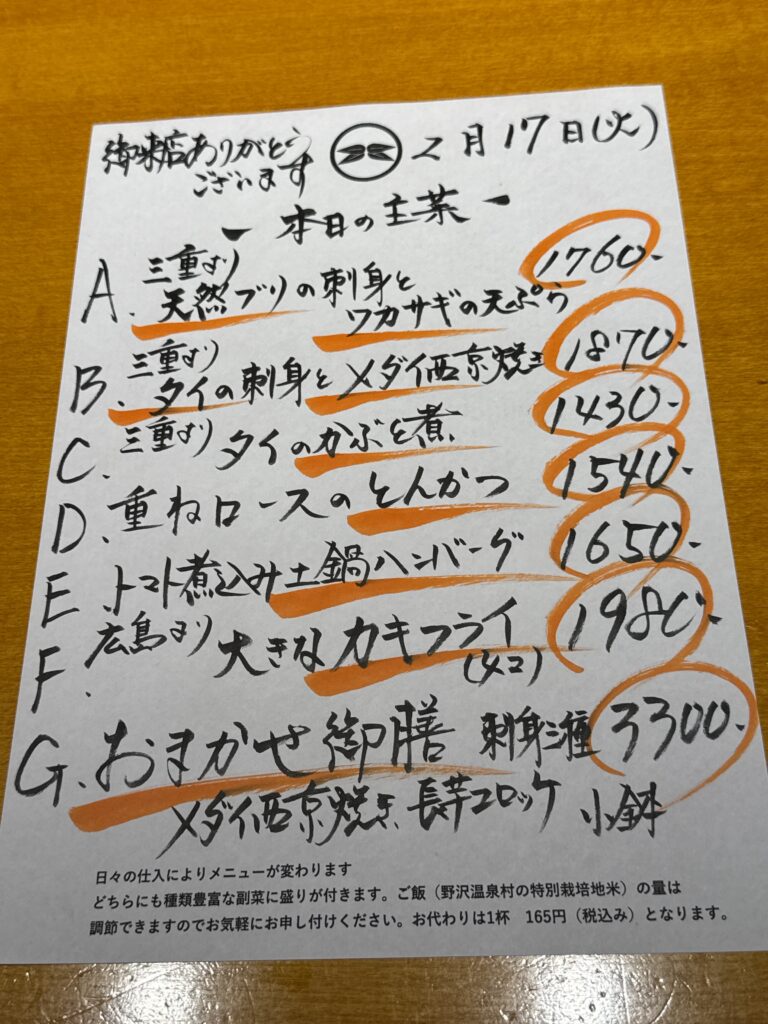 御来店ありがとう
ございます
2月17日(火)
- 本日の主菜 -
A. 三重より
天然ブリの刺身と
ワカサギの天ぷら 1760-
B. 三重より
タイの刺身とメダイ西京焼き 1870-
C. 三重より タイのかぶと煮 1430-
D. 重ねロースのとんかつ 1540-
E. トマト煮込み土鍋ハンバーグ 1650-
F. 広島より 大きなカキフライ 1980-
(4コ)
G. おまかせ御膳 刺身三種 3300-
メダイ西京焼き 長芋コロッケ 小鉢
日々の仕入によりメニューが変わります
どちらにも種類豊富な副菜に盛りが付きます。ご飯（野沢温泉村の特別栽培地米）の量は
調節できますのでお気軽にお申し付けください。お代わりは1杯　165円（税込み）となります。